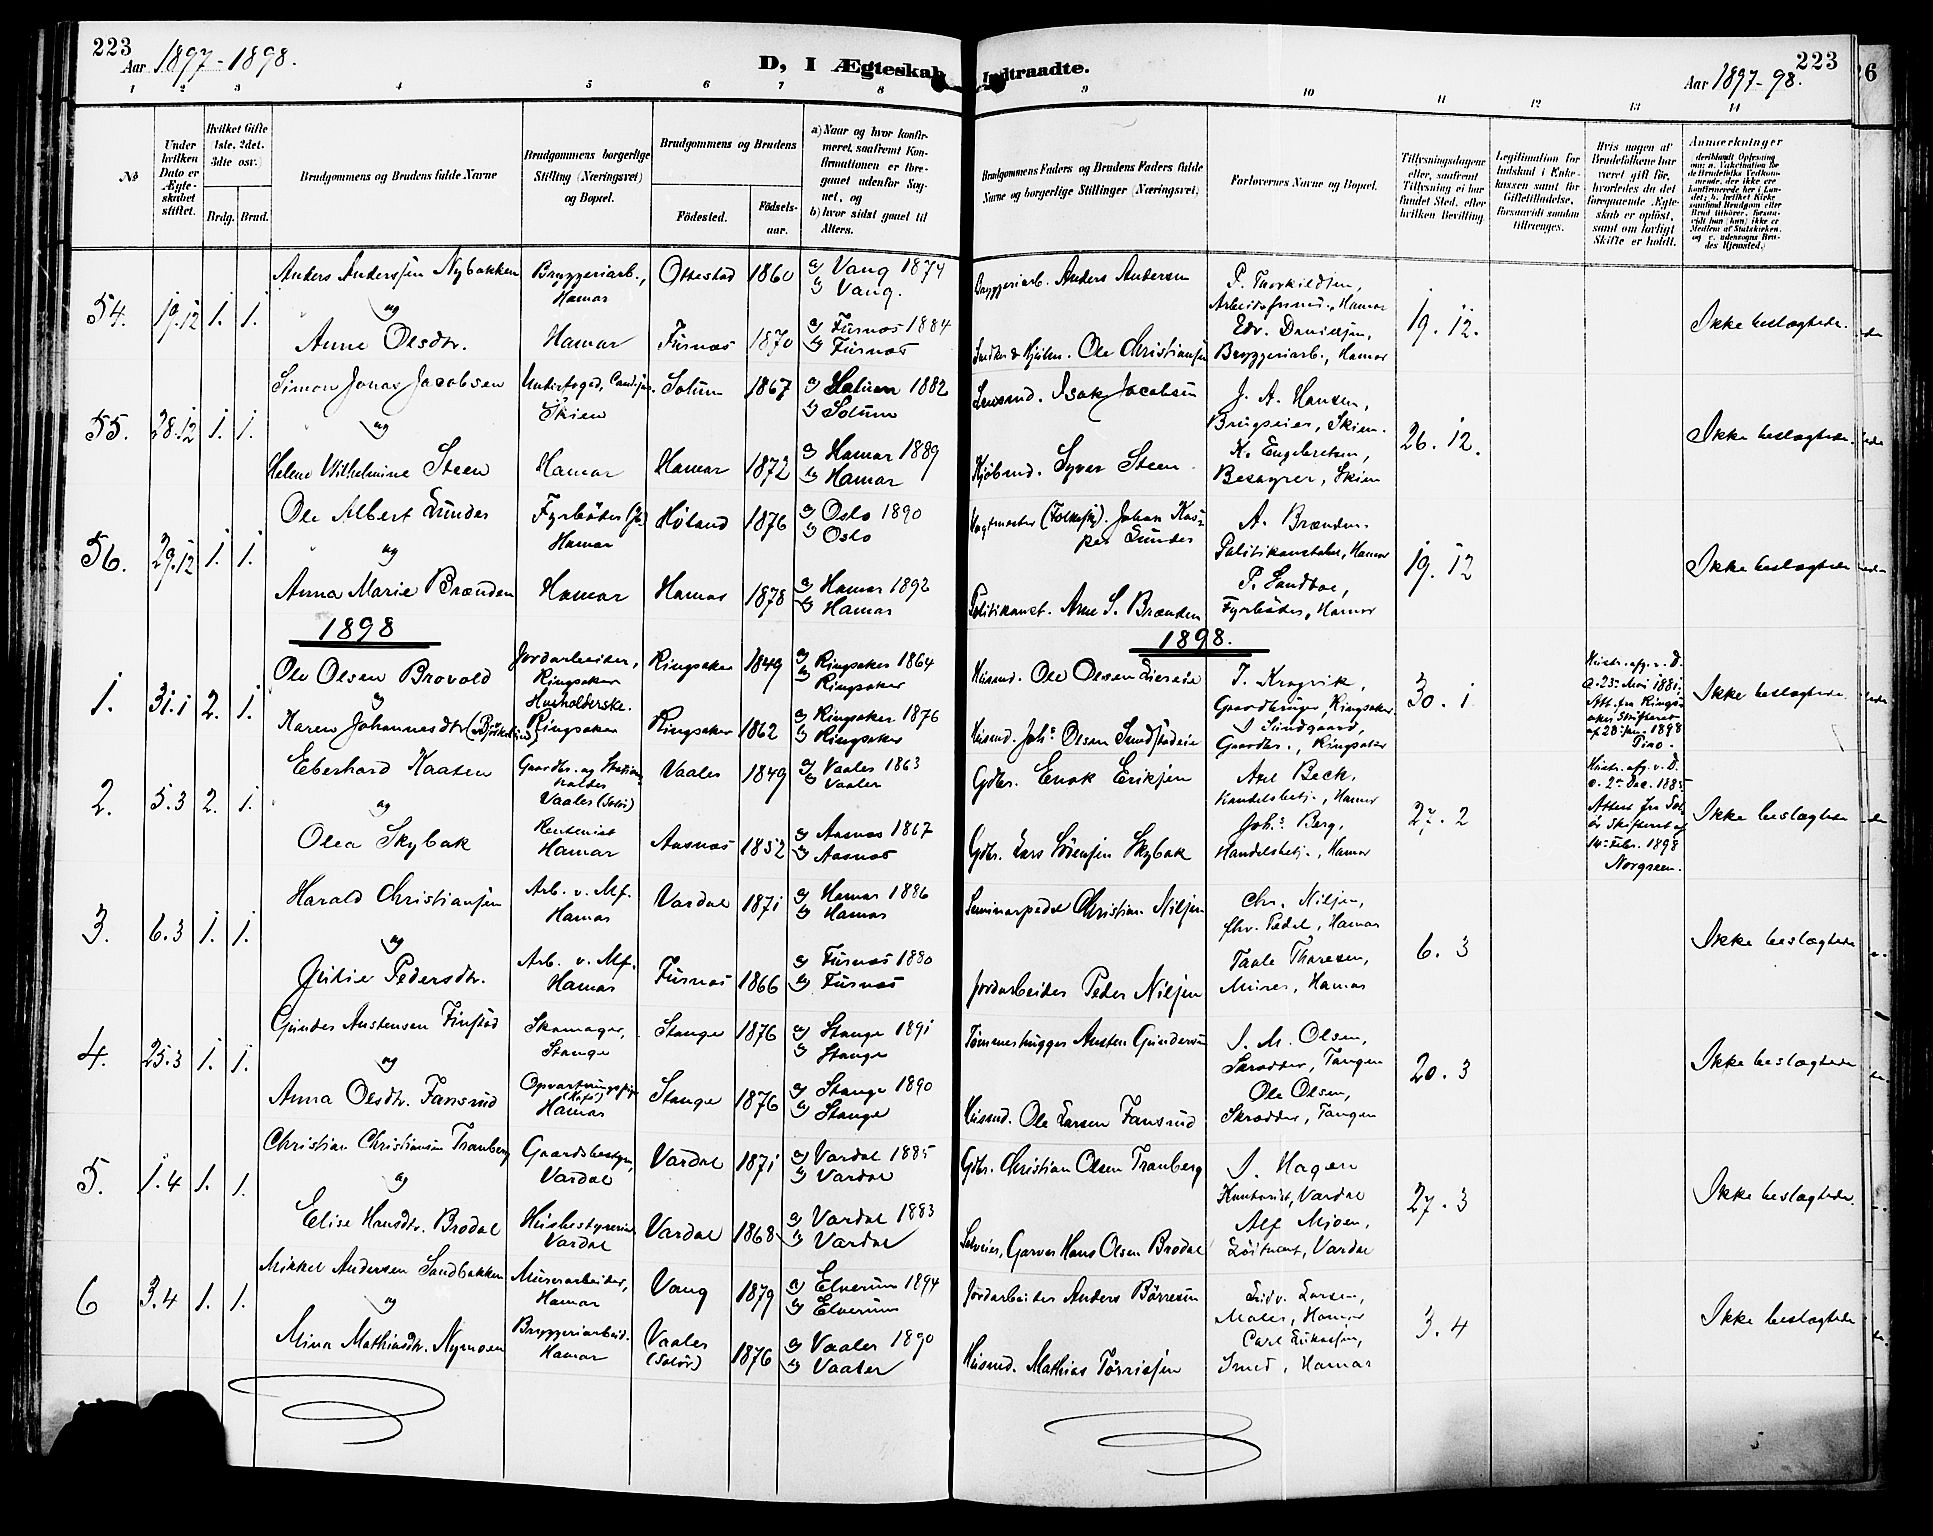 223
Aar 1897-1898.
D, I Ægteskab Indtraadte.
Aar 1897-98.
223
1 2 3 4 5 6 7 8 9 10 11 12 13 14
No
Under hvilken Dato er Ægteskabet stiftet.
Hvilket Gifte 1ste, 2det, 3dte osv.
Brdg. Brud.
Brudgommens og Brudens fulde Navne
Brudgommens borgerlige Stilling (Næringsvei) og Bopæl.
Brudgommens og Brudens
Fødested.
Fødselsaar.
a) Naar og hvor konfirmeret, saafremt Konfirmationen er foregaaet udenfor Sognet, og
b) hvor sidst gaaet til Alters.
Brudgommens Faders og Brudens Faders fulde Navne og borgerlige Stillinger (Næringsvei).
Forlovernes Navne og Bopæl.
Tillysningsdagene eller, saafremt Tillysning ei har fundet Sted, efter hvilken Bevilling
Legitimation for Indskud i Enkekassen samt for Giftetilladelse, forsaavidt saadan tiltrænges.
Hvis nogen af Brudefolkene har været gift før, hvorledes da det foregaaende Ægteskab er opløst, samt om lovligt Skifte er holdt.
Anmerkninger
54. 19/12 1. 1.
Anders Anderssen Nybakken
Bryggeriarb., Hamar
Ottestad 1860
a) Vang 1874
b) Vang.
Bryggeriarb. Anders Andersen
P. Thorkildsen,
Arbeidsformd., Hamar
19. 12.
Ikke beslægtede.
og
Anne Olsdtr.
Hamar
Furnæs 1870
a) Furnæs 1884
b) Furnæs
Ole Christiansen
Edv. Davidsen,
Bryggeriarb., Hamar
55. 28.12 1. 1.
Simon Jonas Jacobsen
Skien
Solum 1867
a) Solum 1882
b) Solum
Isak Jacobsen
J. A. Hansen,
Brugseier, Skien.
26. 12.
Ikke beslægtede.
og
Helene Wilhelmine Steen
Hamar
Hamar 1872
a) Hamar 1889
b) Hamar
Kjøbmd. Syver Steen
K. Engebretsen,
Besøgrer, Skien
56. 29.12 1. 1.
Ole Albert Lunder
Fyrbøder Hamar
Høland 1876
a) Oslo 1890
b) Oslo
Vagtmester Johan Kasper Lunder
A. Brænden
Politikonstabel, Hamar
19. 12
Ikke beslægtede
og
Anna Marie Brænden
Hamar
Hamar 1878
a) Hamar 1892
b) Hamar
Politikonst. Arne S. Brænden
P. Sandboe,
Fyrbøder, Hamar
1898
1898.
1. 31.1 2. 1.
Ole Olsen Brovold
Jordarbeider, Ringsaker
Ringsaker 1849
a) Ringsaker 1864
b) Ringsaker
Husmd. Ole Olsen
J. Krogvik,
Gaardbruger, Ringsaker.
30. 1
Ikke beslægtede
og
Karen Johannesdtr
Husholderske. Ringsaker
Ringsaker 1862
a) Ringsaker 1876
b) Ringsaker
Husmd. Johs. Olsen
Gaardbr., Ringsaker
2. 5.3 2. 1.
Eberhard Kaaten
Gaardbr. og
Vaaler (Solør)
Vaaler 1849
a) Vaaler 1863
b) Vaaler
Gdbr. Enok Eriksen
Axel Beck,
Handelsbetj., Hamar
27. 2
14de Febr. 1898
Norgreen.
Ikke beslægtede
og
Olea Skybak
Rentenist Hamar
Aasnæs 1852
a) Aasnæs 1867
b) Aasnæs
Gdbr. Lars Sørensen Skybak
Johs. Berg,
Handelsbetj., Hamar
3. 6.3 1. 1.
Harald Christiansen
Arb. v. Mf. Hamar
Vardal 1871
a) Hamar 1886
b) Hamar
Seminarpedel Christian Nilsen
Chr. Nilsen,
fhv. Pedel, Hamar
6. 3
Ikke beslægtede
og
Julie Pedersdtr.
Arb. v. Mf. Hamar
Furnæs 1866
a) Furnæs 1880
b) Furnæs
Jordarbeider Peder Nilsen
Taale Thoresen,
Murer, Hamar
4. 25.3 1. 1.
Gunder Austensen Finstad
Skomager, Stange
Stange 1876
a) Stange 1891
b) Stange
Tømmerhugger Austen Gundersen
J. M. Olsen,
Skrædder, Tangen
20. 3
Ikke beslægtede
og
Anna Olsdtr. Fansrud
Opvartningspige (Kafe) Hamar
Stange 1876
a) Stange 1890
b) Stange
Husmd. Ole Larsen Fansrud
Ole Olsen,
Skrædder, Tangen
5. 1.4 1. 1.
Christian Christiansen Tranberg
Gaardsbestyr., Vardal
Vardal 1871
a) Vardal 1885
b) Vardal
Gdbr. Christian Olsen Tranberg
J. Hagen
Kontorist, Vardal
27. 3
Ikke beslægtede.
og
Elise Hansdtr. Brodal
Husbestyrerinde Vardal
Vardal 1868
a) Vardal 1883
b) Vardal
Selveier, Garver Hans Olsen Brodal
Alf Mjøen,
Løitnant, Vardal
6 3.4 1. 1.
Mikkel Andersen Sandbakken
Murerarbeider, Hamar
Vang 1879
a) Elverum 1894
b) Elverum
Jordarbeider Anders Børresen
Ludv. Larsen,
Maler, Hamar
3. 4
Ikke beslægtede
og
Mina Mathiasdtr. Nymoen
Bryggeriarbeid. Hamar
Vaaler (Solør) 1876
a) Vaaler 1890
b) Vaaler
Husmd. Mathias Tørrissen
Carl Lukassen,
Smed, Hamar